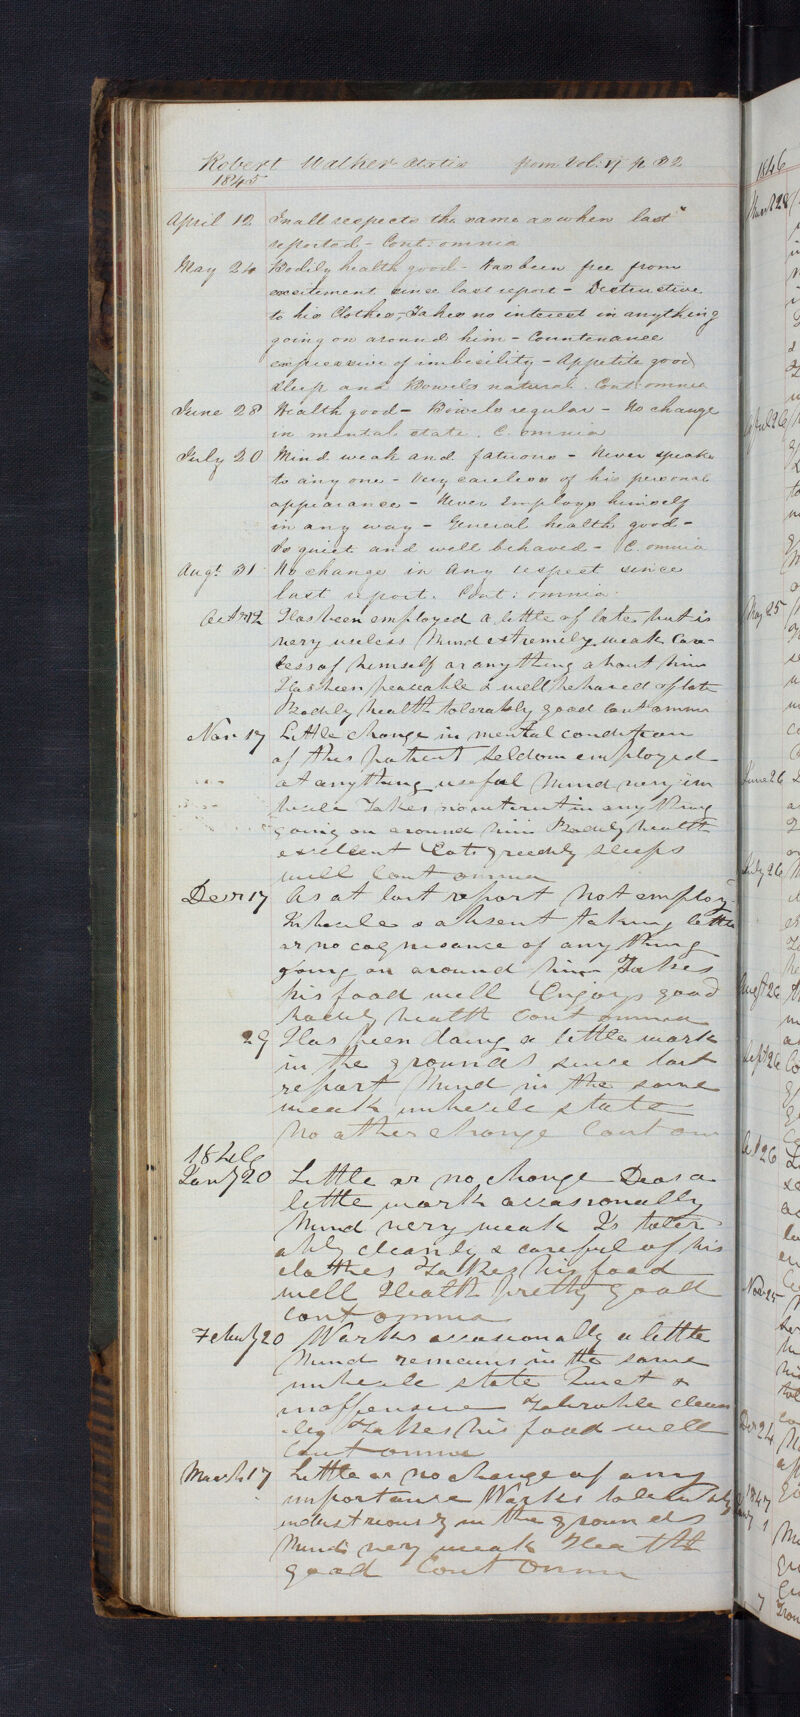 Robert Walker Aetatis from Vol: 17 p 82
1845
April 12 In all respects the same as when last
reported - Cont: omnia
May 24 Bodily health good - Has been free from
excitement since last report - Destructive
to his Clothes, - Takes no interest in anything
going on around him - Countenance
expressive of imbecility - Appetite good
sleep and Bowels natural. Cont: omnia
June 28 Health good - Bowels regular - No change
in mental state. C. omnia
July 20 Mind weak and fatuous - Never speaks
to any one - Very careless of his personal
appearance - Never Employs himself
in any way - General health good -
Is quiet and well behaved - C. omnia
Augt. 31 No change in any respect since
last report. Cont: omnia.
Octr 12 Has been employed a little of late but is
very useless Mind extremely weak Care-
less of himself or anything about him
Has been peaceable & well behaved of late
Bodily health tolerably good Cont omnia
Nov 17 Little change in mental condition
of this patient Seldom employed
at anything useful Mind very im
becile Takes no interest in any thing
going on around him Bodily health
excellent Eats greedily sleeps
well Cont omnia
Decr 17 As at last report Not employ-
Imbecile & absent taking little
or no cognisance of any thing
going on around him Takes
his food well Enjoys good
bodily health Cont omnia
29 Has been doing a little work
in the grounds since last
report Mind in the same
weak imbecile state
No other change Cont om
1846
Jany 20 Little or no change Does a
little work occasionally
Mind very weak Is toler
ably cleanly & careful of his
clothes Takes his food
well Health pretty good
Cont omnia
Febuy 20 Works occasionally a little
Mind remains in the same
imbecile state Quiet &
inoffensive Tolerable clean
ly Takes his food well
Cont omnia
March 17 Little or no change of any
importance Works tolerably
industriously in the grounds
Mind very weak Health
good Cont Omnia
1846
March 28
April 26
May 25
June 26
July 26
Augt 26
Sept 26
Oct 26
Nov 25
Decr 24
1847